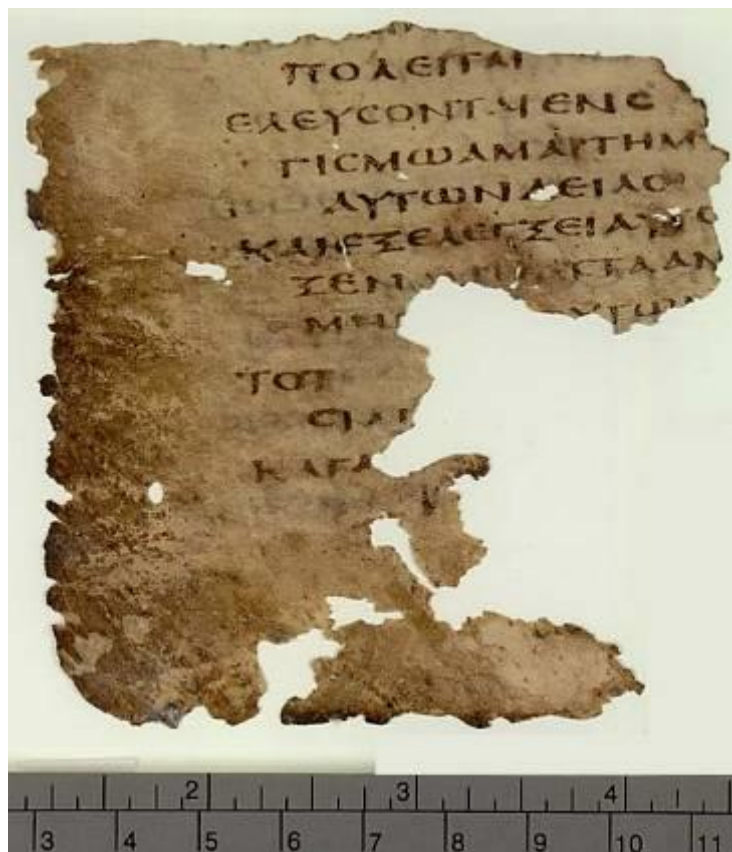 ΠΟΛΕΙΤΑΙ
ΕΛΕΥϹΟΝΤΑΙ ΕΝ Ϲ
ΓΙϹΜΩ ΑΜΑΡΤΗΜ
ΑΥΤΩΝ ΔΕΙΛΟ
ΚΑΙ ΕΞΕΛΕΓΞΕΙ ΑΥΤΟ
ΞΕΝ ΤΑ ΑΝ
ΜΗ ΥΤΩ
ΤΟΤ
ΚΑΤΑ
2 3 4
3 4 5 6 7 8 9 10 11